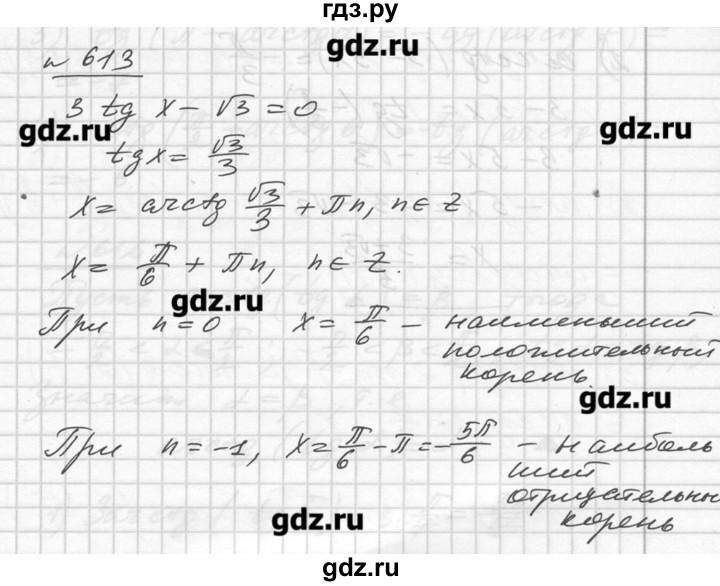 гдз.ру
n 613
gdz.ru
3 tg x - √3 = 0
gdz.ru
gdz.ru
tg x = √3/3
x = arctg √3/3 + πn, n ∈ Z
x = π/6 + πn, n ∈ Z.
gdz.ru
При n = 0 x = π/6 - наименьший
положительный
корень.
gdz.ru
При n = -1, x = π/6 - π = -5π/6 - наиболь
ший
отрицательны
корень
gdz.ru
гдз.ру